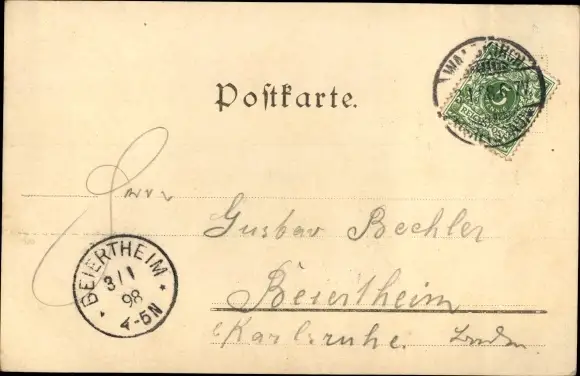 Postkarte.
Herr
Gustav Bechler
Beiertheim
Karlsruhe.
BEIERTHEIM
3/1
98
4-5N